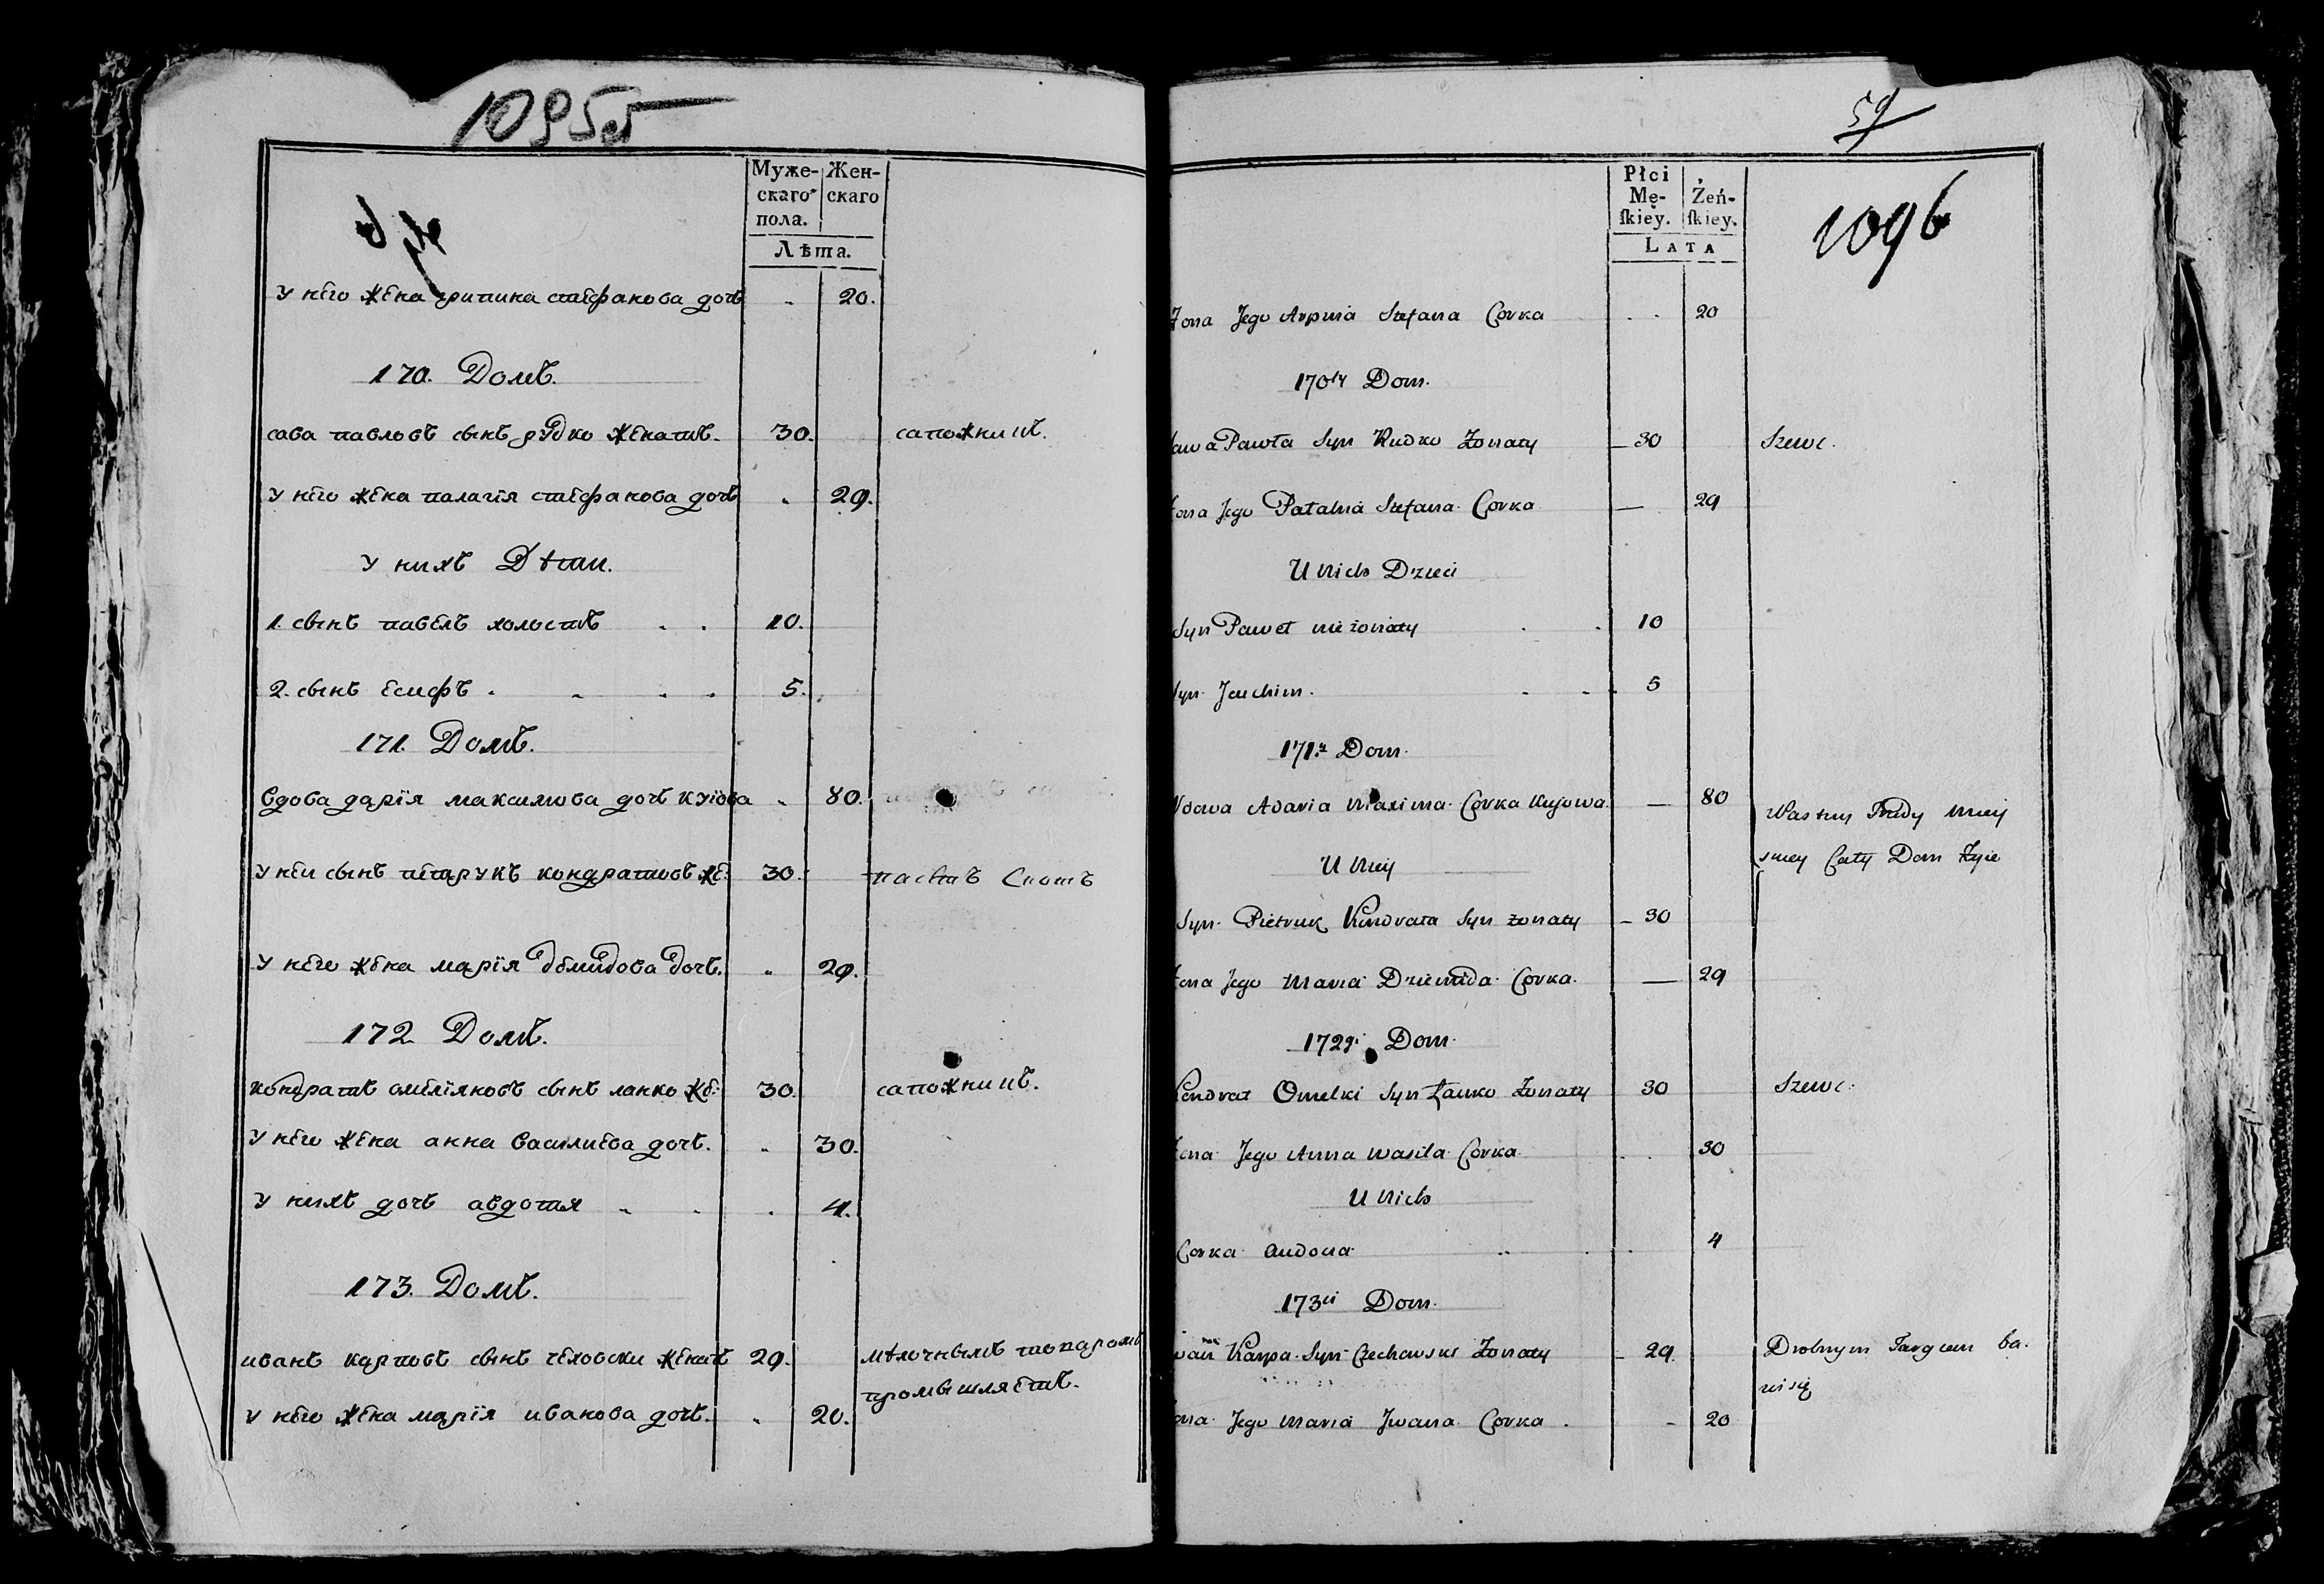 1095
Муже-
скаго
пола.
Жен-
скаго
Лѣта.
у него жена грипина стефанова дочь 20.
170. Домъ.
сава павловъ сынъ рудко женатъ. 30. сапожникъ.
у него жена палагія стефанова дочь 29.
у нихъ Дѣти.
1. сынъ павелъ холостъ 10.
2. сынъ есифъ 5.
171. Домъ.
вдова дарія максимова дочь куіова 80.
у неи сынъ петрукъ кондратовъ же: 30. пасетъ скотъ
у него жена марія демидова дочь. 29.
172 Домъ.
кондратъ омеліяновъ сынъ ланко же: 30. сапожникъ.
у него жена анна василиева дочь. 30.
у нихъ дочь авдотя 4.
173. Домъ.
иванъ карповъ сынъ чеховски женатъ 29. мѣлочнымъ товаромъ
промышляетъ.
у него жена марія иванова дочь. 20.
59
Płci
Mę-
ſkiey.
Żeń-
ſkiey.
LATA
1096
Zona Jego Arpina Stefana Corka 20
170ty Dom.
Sawa Pawła Syn Rudko Zonaty 30 Szewc.
Zona Jego Pałahia Stefana Corka 29
U Nich Dzieci
Syn Paweł nie żonaty 10
Syn Joachim. 5
171. Dom.
Wdowa Adaria Maxima Corka Kujowa 80
U Niey
smey Cały Dom Żyie
Syn Pietruk Kindrata Syn żonaty 30
Zona Jego Maria Dziemida Corka. 29
172gi Dom.
Kendrat Omelki Syn Łanko Zonaty 30 Szewc.
Zona Jego Anna Wasila Corka 30
U Nich
Corka Audocia 4
173ci Dom.
Iwan Karpa Syn Czechowski Zonaty 29 Drobnym Targiem ba.
wi się
Zona Jego Maria Jwana Corka 20